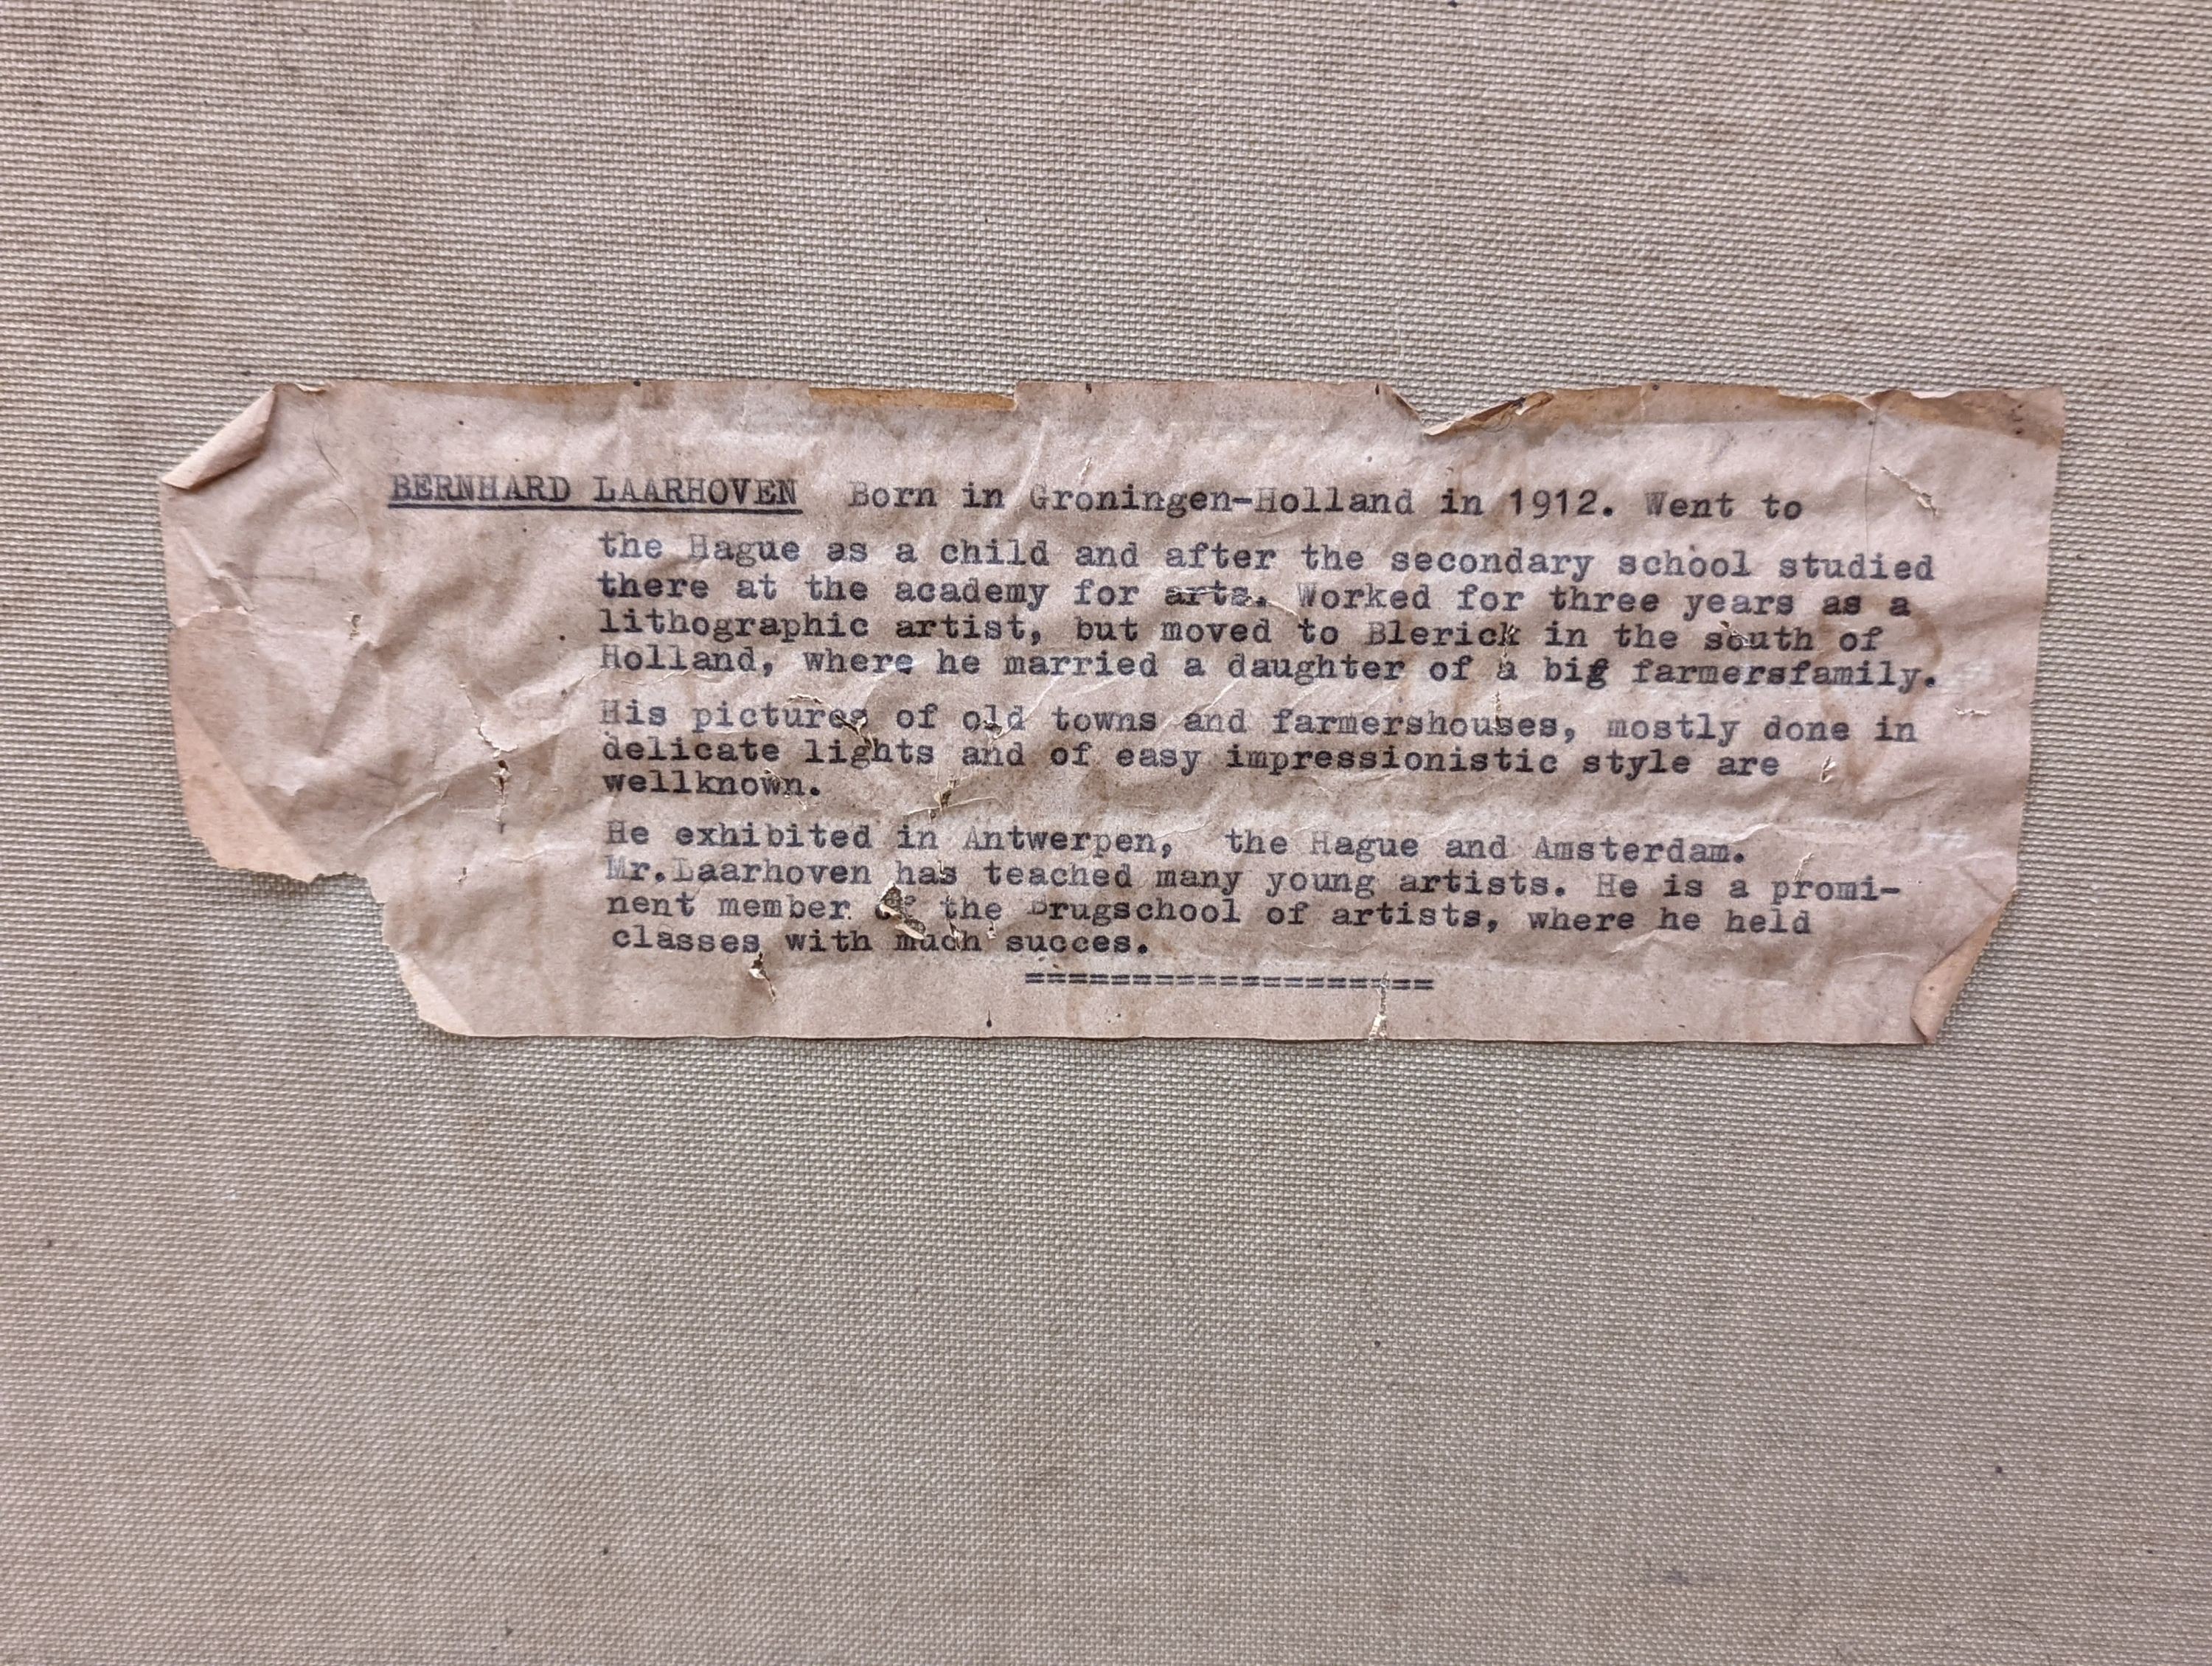 BERNHARD LAARHOVEN Born in Groningen-Holland in 1912. Went to
the Hague as a child and after the secondary school studied
there at the academy for arts. Worked for three years as a
lithographic artist, but moved to Blerick in the south of
Holland, where he married a daughter of a big farmersfamily.
His pictures of old towns and farmershouses, mostly done in
delicate lights and of easy impressionistic style are
wellknown.
He exhibited in Antwerpen, the Hague and Amsterdam.
Mr.Laarhoven has teached many young artists. He is a promi-
nent member of the Brugschool of artists, where he held
classes with much succes.
===================